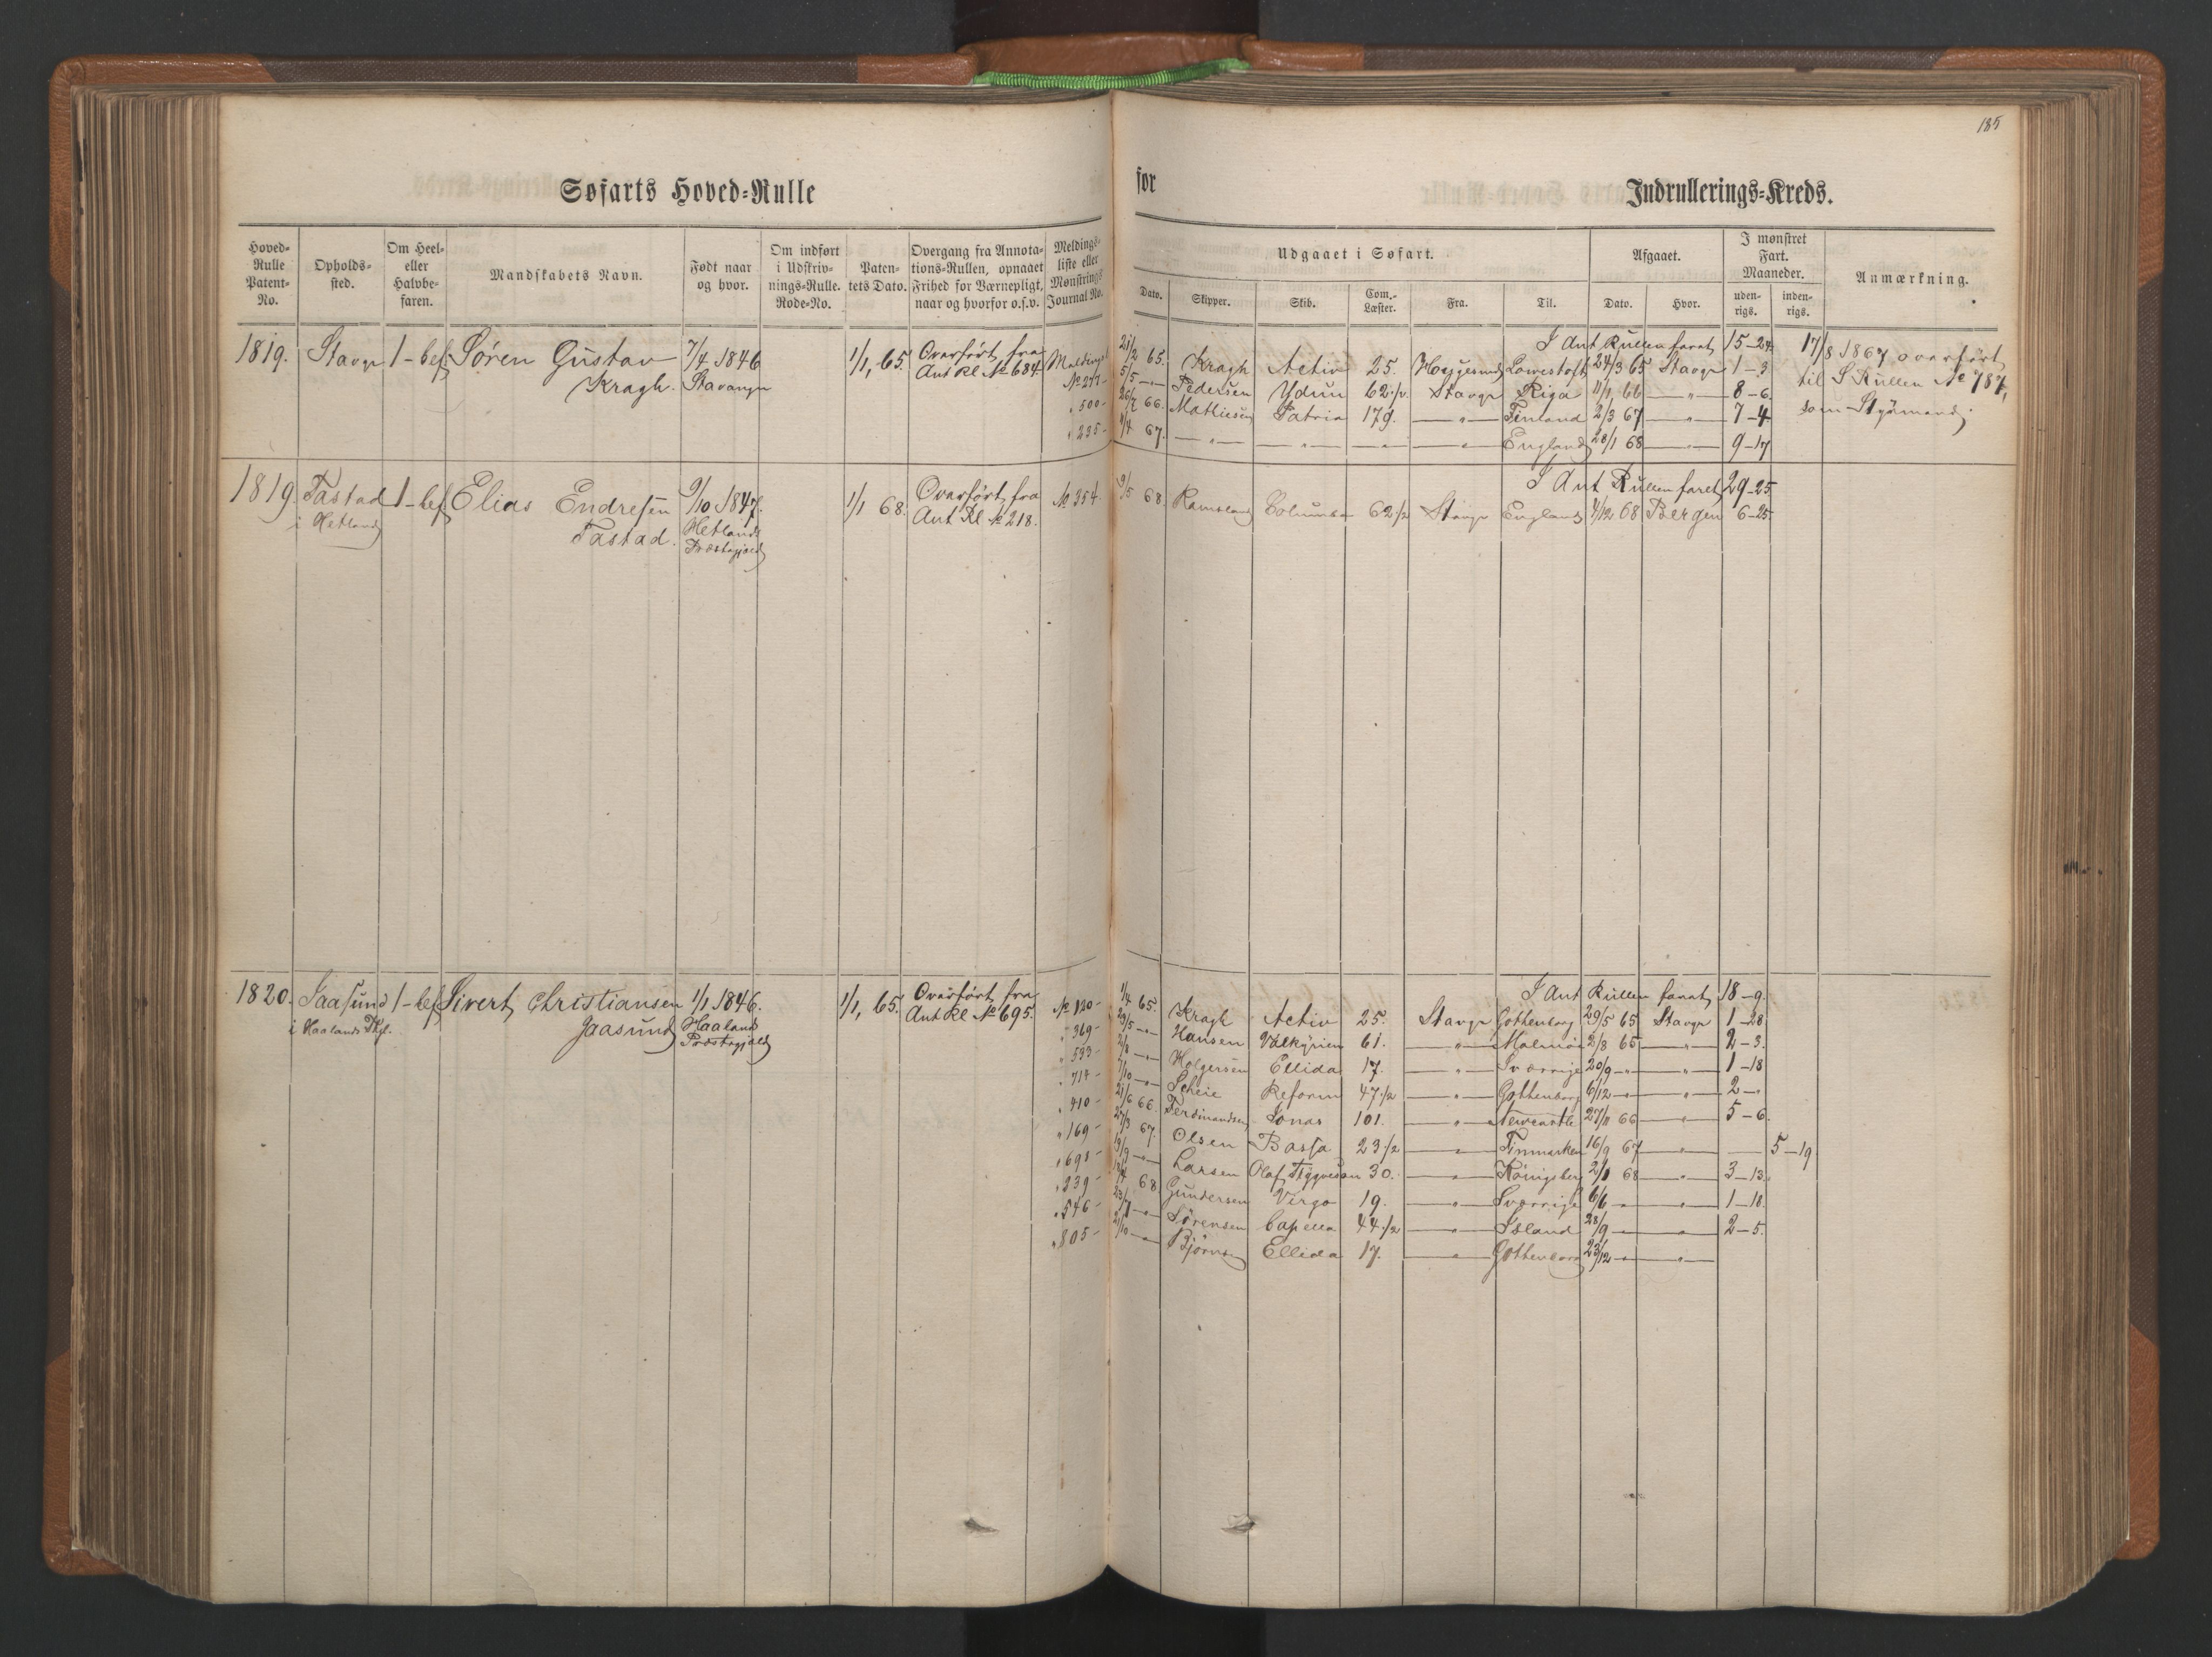 185
Søfarts Hoved=Rulle
for Indrullerings=Kreds.
Hoved=Rulle Patent=No.
Opholds=sted.
Om Heel= eller Halvbe=faren.
Mandskabets Navn.
Født naar og hvor.
Om indført i Udskriv=nings=Rulle. Rode=No.
Paten=tets Dato.
Overgang fra Annota=tions=Rullen, opnaaet Frihed for Værnepligt, naar og hvorfor o.s.v.
Meldings=liste eller Mønstrings Journal No.
Udgaaet i Søfart.
Afgaaet.
I mønstret Fart. Maaneder.
Anmærkning.
Dato. Skipper. Skib. Com.=Læster. Fra. Til. Dato. Hvor. uden=rigs. inden=rigs.
1819. Stavgr 1-bef Sören Gustav Kragh. 7/4 1846 Stavanger 1/1, 65. Overført fra Ant Rl No 684
I Ant Rullen faret 15-24
No 277- 21/2 65. Kragh Activ 25. Lowestoft 24/3 65 Stavgr 1-3
" 500- 5/5 -"- Pedersen Ydun 62 1/2. Stavgr Riga 11/1, 66 -"- 8-6.
26/7 66. Mathiesen Patria 179. -"- Finland 2/3 67 -"- 7-4
" 235- 9/4 67. -"- -"- -"- -"- England 28/1 68 -"- 9-17
17/8 1867 overført
til S Rullen No 787,
som Styrmand.
1819. Tastad i Hetland 1-bef Elias Endresen Tastad. 9/10 1847. Hetlands Præstegjeld 1/1 68. Overført fra Ant Rl No 218.
I Ant Rullen faret 29-25
No 354- 9/5 68 Ramsland Columba 62 1/2 Stavgr England 4/12 68 Bergen 6-25.
1820. Jaasund i Haalands Pgl. 1-bef Sivert Christiansen Jaasund 1/1 1846. Haaland Præstegjeld 1/1, 65. Overført fra Ant Rl No 695.
I Ant Rullen faret 18-9.
No 120- 1/4 65. Kragh Activ 25. Stavgr Gothenborg 29/5 65 Stavgr 1-28
" 369- 29/5 -"- Hansen Valkyrien 61. -"- Malmö 2/8 65 -"- 2-3.
" 533- 2/8 -"- Holgersen Ellida 17. -"- Sværrige 20/9 -"- -"- 1-18
" 714- 7/10 -"- Scheie Reform 47 1/2 -"- Gothenborg 6/12 -"- -"- 2-"
" 410- 21/6 66. Ferdinandsen Jonas 101. -"- Newcastle 27/11 66 -"- 5-6.
" 169- 27/3 67. Olsen Bassa 23 1/2 -"- Finmarken 16/9 67 -"- 5-19
" 698- 19/9 -"- Larsen Olaf Tygveson 30. -"- Königsberg 2/1 68 -"- 3-13.
" 239- 18/4 68 Gundersen Virgo 19. -"- Sværrige 6/6 -"- -"- 1-18.
" 546- 23/7 -"- Sörensen Capella 44 1/2 -"- Island 28/9 -"- -"- 2-5.
" 805- 21/10 -"- Björnsen Ellida 17. -"- Gothenborg 23/12 -"- -"-